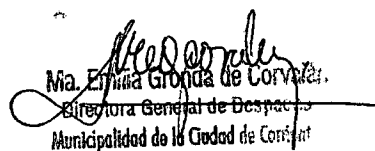 Ma. Emilia Gronda de Corvalán
Directora General de Despacho
Municipalidad de la Ciudad de